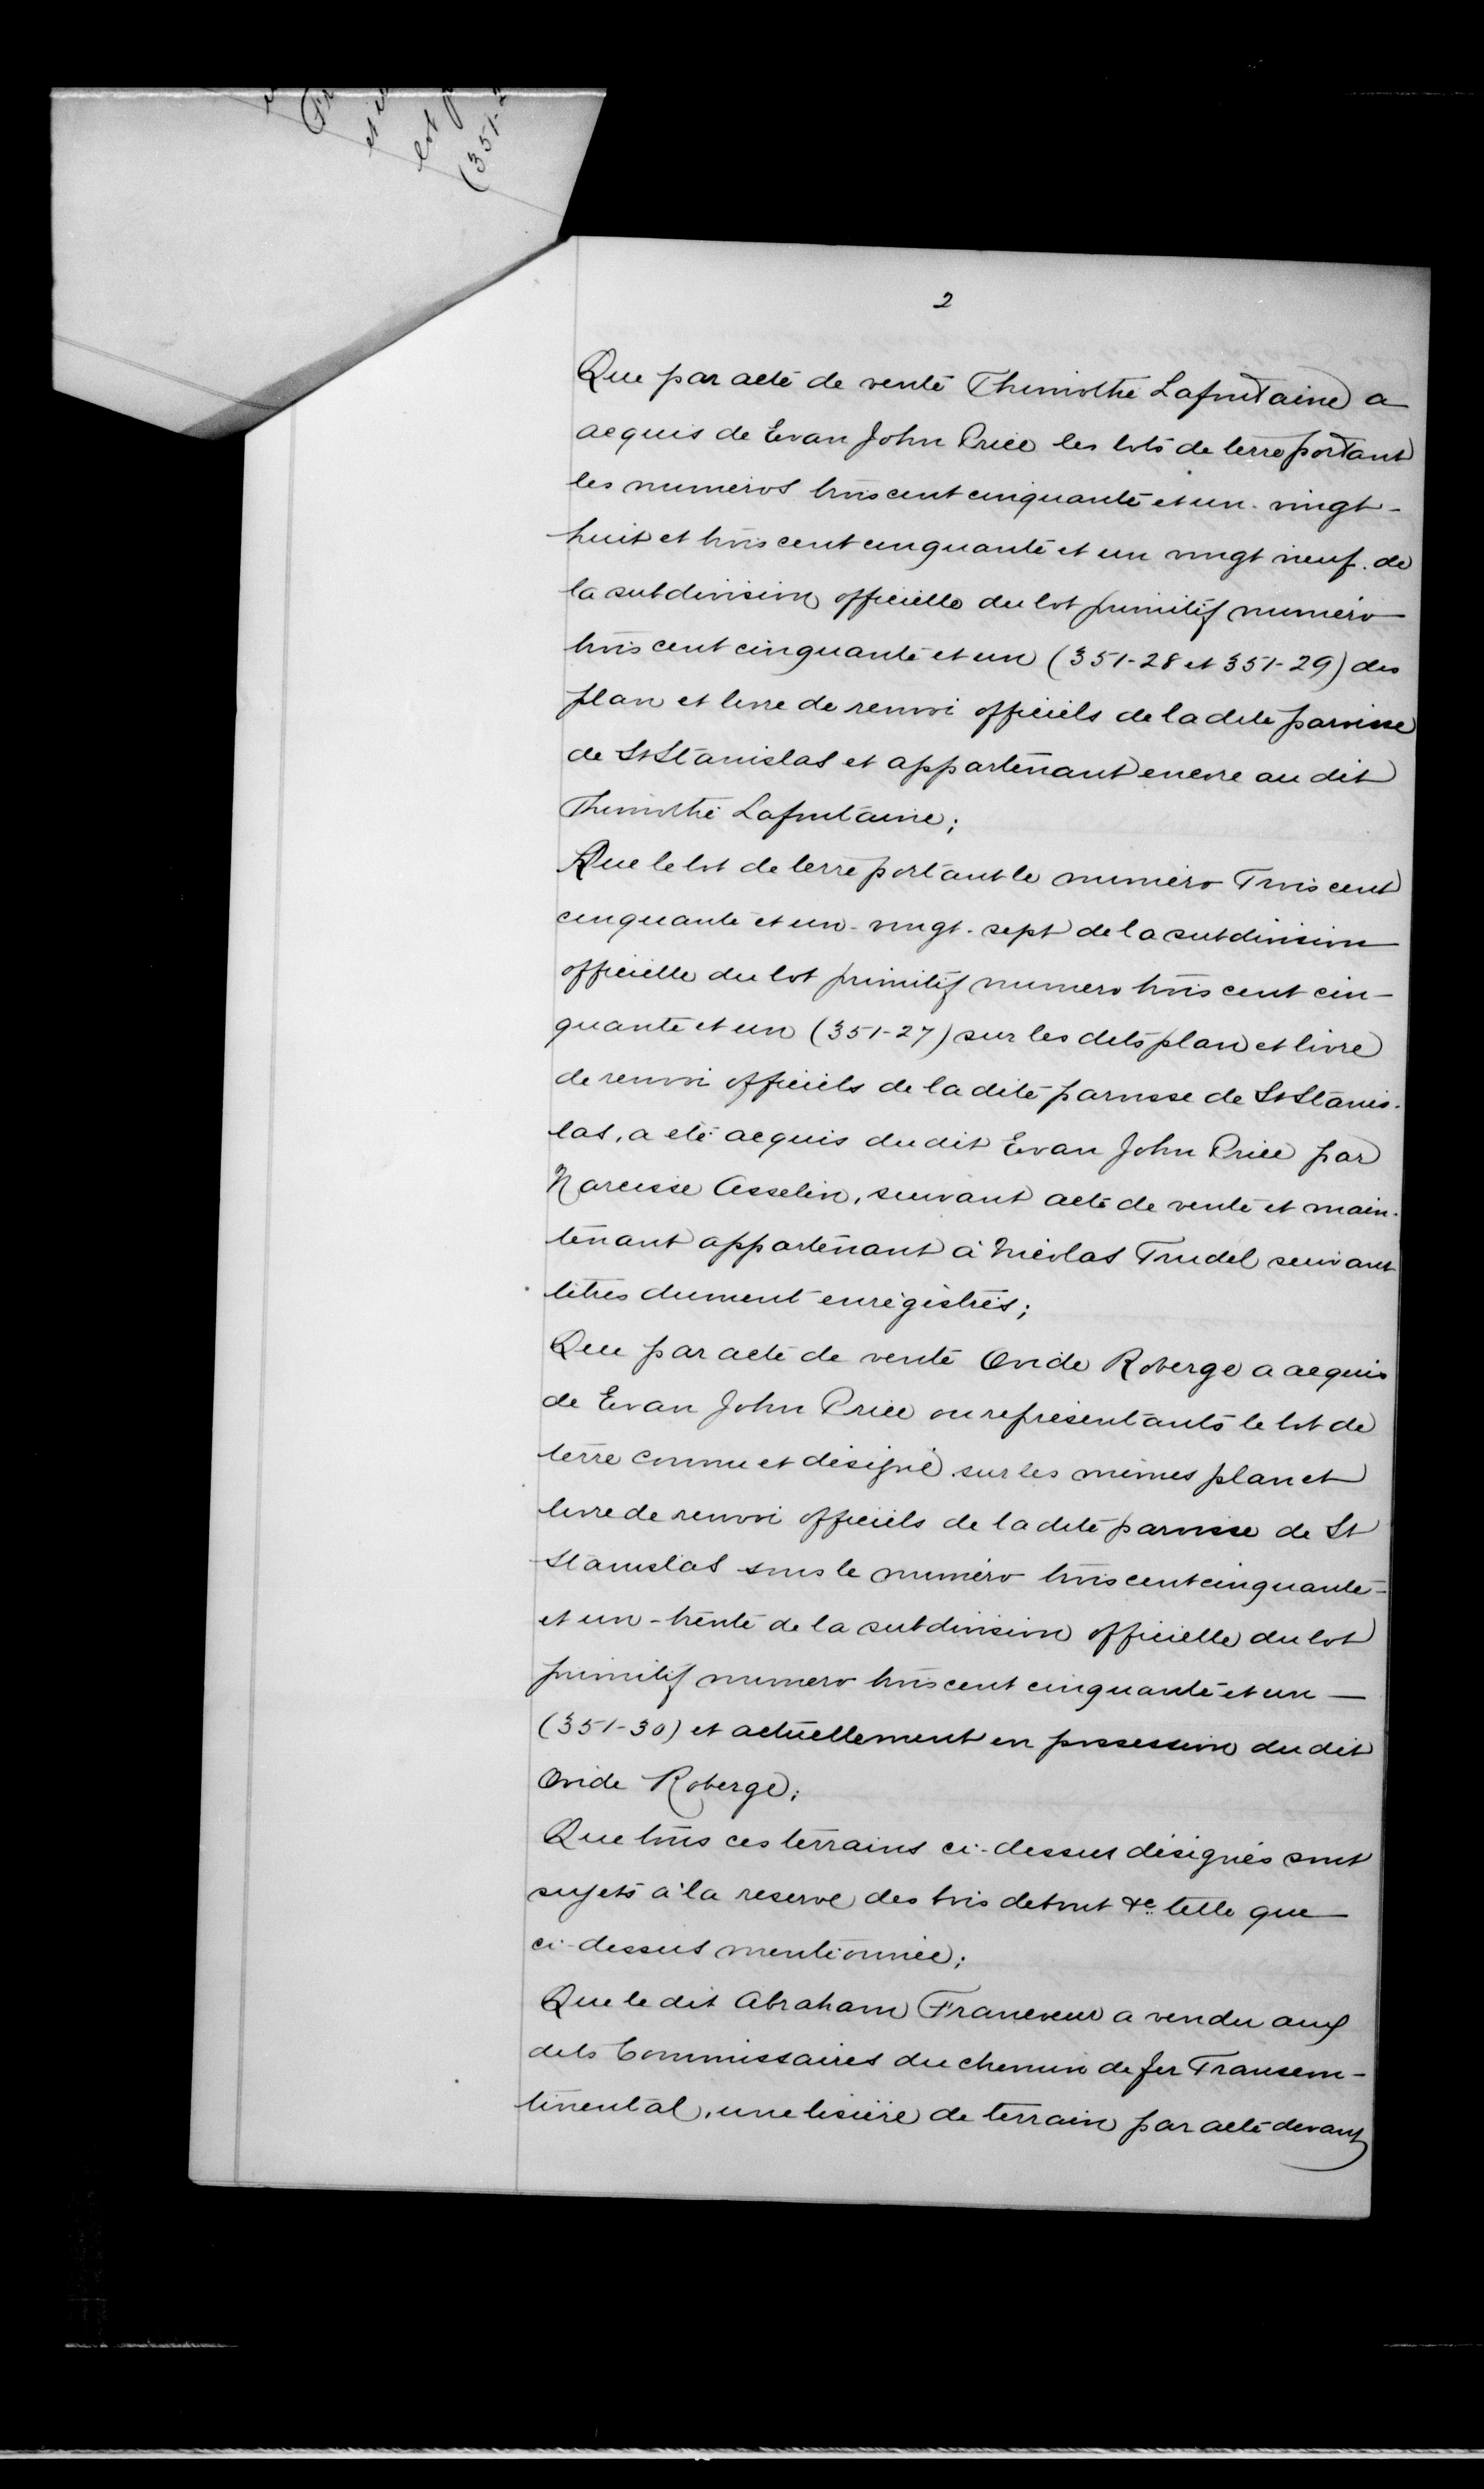 (351-2
2
Que par acte de vente Thimothé Lafontaine a
acquis de Evan John Price les lots de terre portant
les numéros trois cent cinquante et un - vingt-
huit et trois cent cinquante et un vingt neuf. de
la subdivision officielle du lot primitif numéro
trois cent cinquante et un (351-28 et 351-29) des
plan et livre de renvoi officiels de la dite paroisse
de St Stanislas et appartenant encore au dit
Thimothé Lafontaine;
Que le lot de terre portant le numéro Trois cent
cinquante et un - vingt - sept de la subdivision
officielle du lot primitif numero trois cent cin-
quante et un (351-27) sur les dits plan et livre
de renvoi officiels de la dite paroisse de St Stanis-
las, a été acquis du dit Evan John Price par
Narcisse Asselin, suivant acte de vente et main-
tenant appartenant à Nicolas Trudel suivant
titres dument enrégistrés;
Que par acte de vente Ovide Roberge a acquis
de Evan John Price ou représentants le lot de
terre connu et désigné sur les mêmes plan et
livre de renvoi officiels de la dite paroisse de St
Stanislas sous le numéro trois cent cinquante-
et un - trente de la subdivision officielle du lot
primitif numero trois cent cinquante et un —
(351-30) et actuellement en possession du dit
Ovide Roberge;
Que tous ces terrains ci-dessus désignés sont
sujets à la reserve des bois debout &c telle que
ci-dessus mentionnée;
Que le dit Abraham Francoeur a vendu aux
dits Commissaires du chemin de fer Transcon-
tinental, une lisière de terrain par acte devant